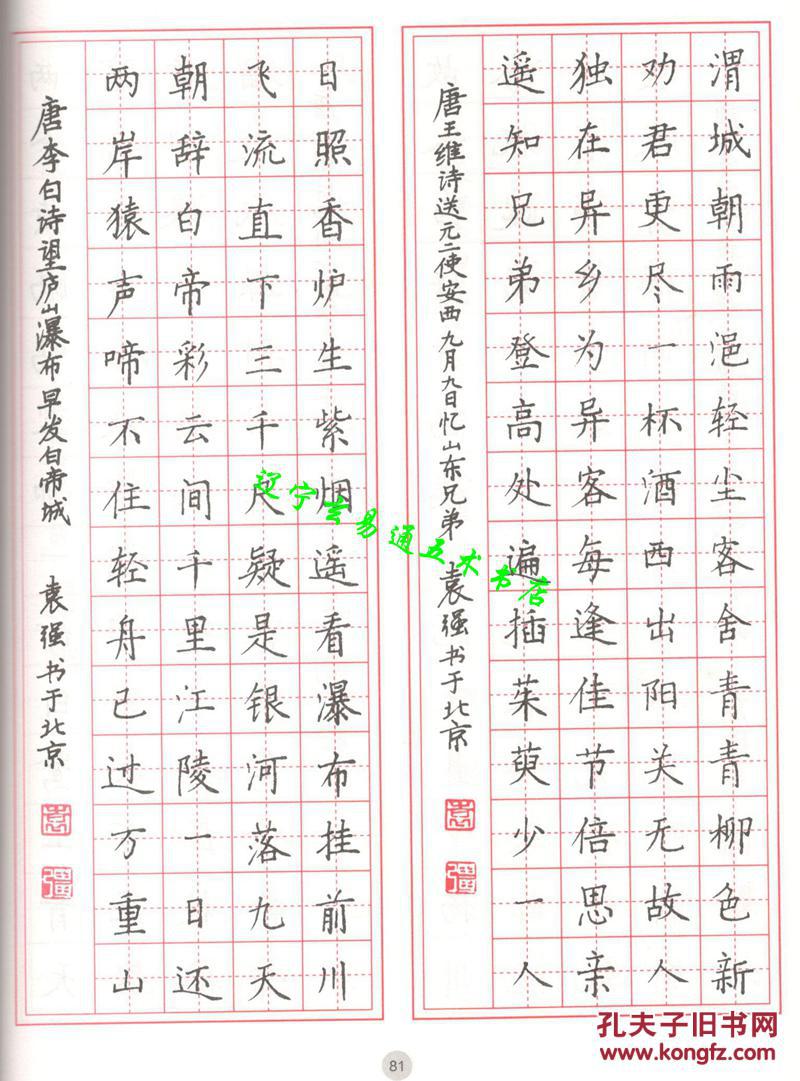 渭城朝雨浥轻尘客舍青青柳色新
劝君更尽一杯酒西出阳关无故人
独在异乡为异客每逢佳节倍思亲
遥知兄弟登高处遍插茱萸少一人
唐王维诗送元二使安西九月九日忆山东兄弟 袁强书于北京
袁
强
日照香炉生紫烟遥看瀑布挂前川
飞流直下三千尺疑是银河落九天
朝辞白帝彩云间千里江陵一日还
两岸猿声啼不住轻舟已过万重山
唐李白诗望庐山瀑布早发白帝城 袁强书于北京
袁
强
辽宁玄易通五术书店
孔夫子旧书网
www.kongfz.com
81